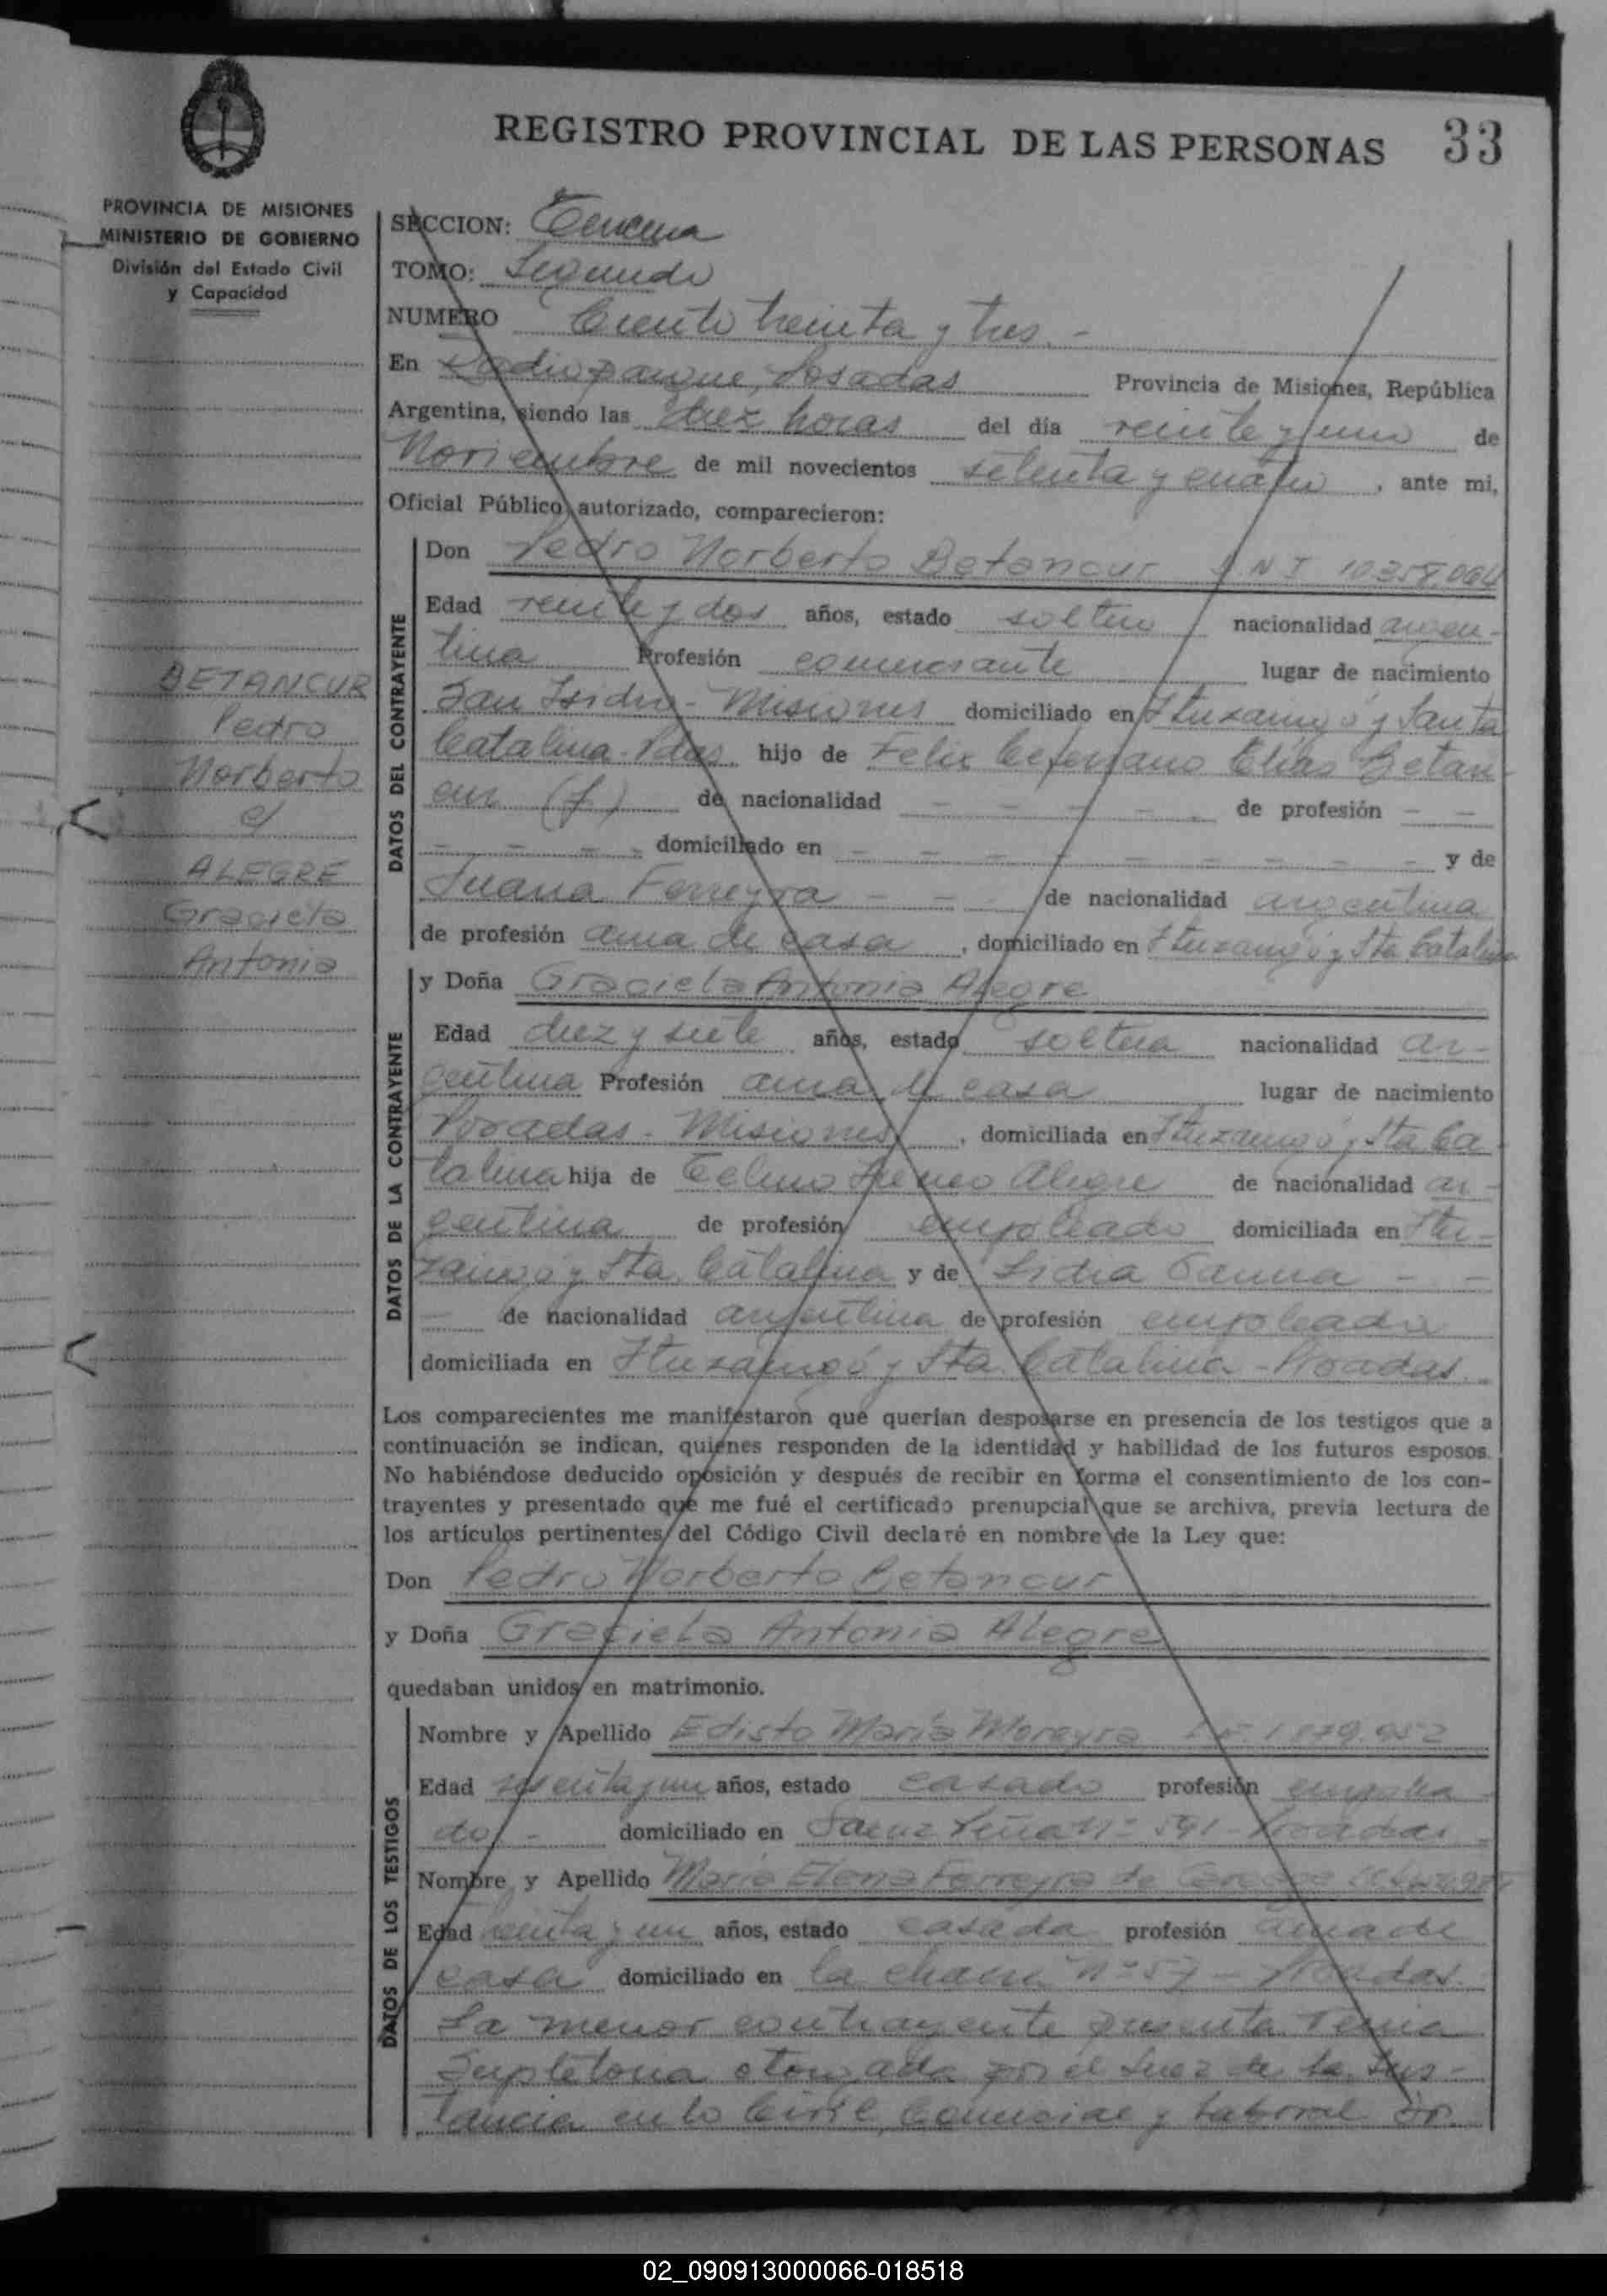 REGISTRO PROVINCIAL DE LAS PERSONAS 33
PROVINCIA DE MISIONES
MINISTERIO DE GOBIERNO
División del Estado Civil
y Capacidad
BETANCUR
Pedro
Norberto
c/
ALEGRE
Graciela
Antonia
SECCION: Tercera
TOMO: Segundo
NUMERO Ciento treinta y tres.-
En Radio parque, Posadas Provincia de Misiones, República
Argentina, siendo las diez horas del día veinte y uno de
Noviembre de mil novecientos setenta y cuatro, ante mi,
Oficial Público autorizado, comparecieron:
DATOS DEL CONTRAYENTE
Don Pedro Norberto Betancur D N I 10.358.064
Edad veinte y dos años, estado soltero nacionalidad argen-
tina Profesión comerciante lugar de nacimiento
San Isidro - Misiones domiciliado en Ituzaingó y Santa
Catalina - Pdas. hijo de Felix Ceferiano Elias Betan-
cur (f.) de nacionalidad - - - - de profesión - -
- - - - domiciliado en - - - - - - - - y de
Juana Ferreyra - - - de nacionalidad argentina
de profesión ama de casa, domiciliado en Ituzaingó y Sta Catalina
DATOS DE LA CONTRAYENTE
y Doña Graciela Antonia Alegre
Edad diez y siete años, estado soltera nacionalidad ar-
gentina Profesión ama de casa lugar de nacimiento
Posadas - Misiones, domiciliada en Ituzaingó y Sta Ca-
talina hija de Telmo Alegre de nacionalidad ar-
gentina de profesión empleado domiciliada en Itu-
zaingó y Sta. Catalina y de Lidia - -
- de nacionalidad argentina de profesión empleada
domiciliada en Ituzaingó y Sta. Catalina - Posadas.
Los comparecientes me manifestaron que querían desposarse en presencia de los testigos que a
continuación se indican, quienes responden de la identidad y habilidad de los futuros esposos.
No habiéndose deducido oposición y después de recibir en forma el consentimiento de los con-
trayentes y presentado que me fué el certificado prenupcial que se archiva, previa lectura de
los artículos pertinentes del Código Civil declaré en nombre de la Ley que:
Don Pedro Norberto Betancur
y Doña Graciela Antonia Alegre
quedaban unidos en matrimonio.
DATOS DE LOS TESTIGOS
Nombre y Apellido Edisto María Moreyra
Edad sesenta y un años, estado casado profesión emplea-
do. - domiciliado en Saenz Peña Nº 591 - Posadas
Nombre y Apellido María Elena Ferreyra de
Edad treinta y un años, estado casada profesión ama de
casa domiciliado en la chacra nº 57 - Posadas.
La menor contrayente presenta Venia
Supletoria otorgada por el Juez de 1a. Ins-
tancia en lo Civil, Comercial y Laboral Dr.
02_090913000066-018518